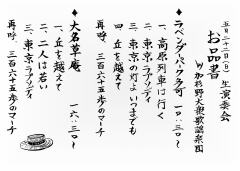 五月二十二日(日) 生演奏会
お品書
加杉野大衆歌謡楽団
◆ラベンダーパーク多可 一〇:三〇〜
一、高原列車は行く
二、東京ラプソディ
三、東京の灯よいつまでも
四 丘を越えて
再呼、三百六十五歩のマーチ
◆大名草庵 一六:三〇〜
一、丘を越えて
二、二人は若い
三、東京ラプソディ
再呼 三百六十五歩のマーチ